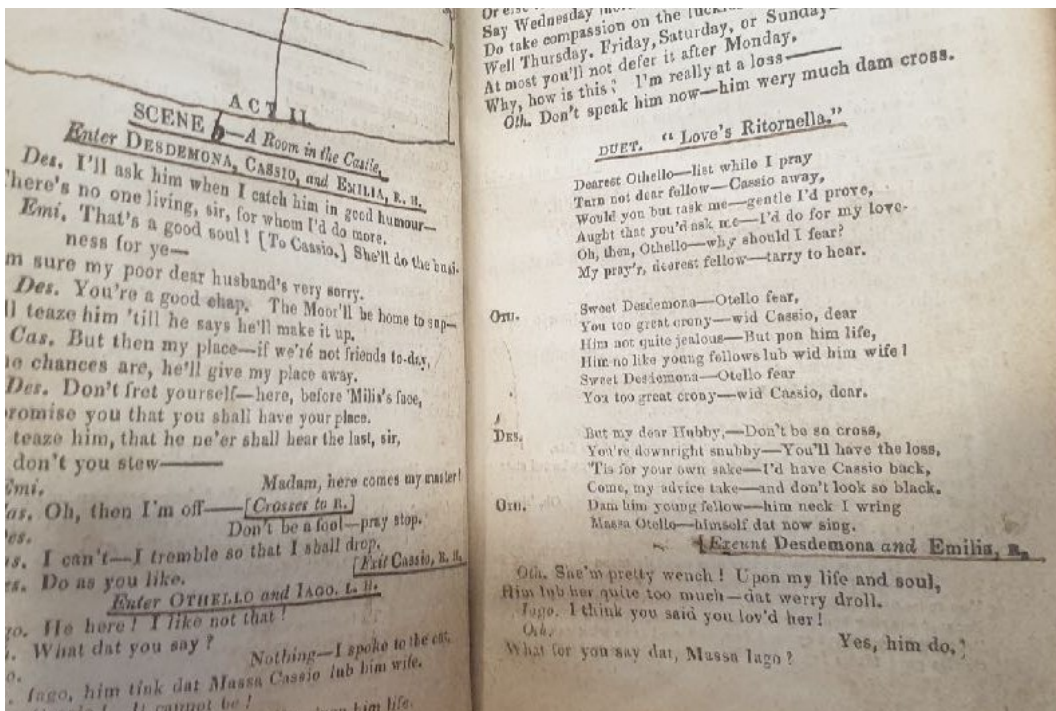 ACT II.
SCENE —A Room in the Castle.
Enter DESDEMONA, CASSIO, and EMILIA, R. H.
Des. I'll ask him when I catch him in good humour—
There's no one living, sir, for whom I'd do more.
Emi. That's a good soul! [To Cassio.] She'll do the busi-
ness for ye—
m sure my poor dear husband's very sorry.
Des. You're a good chap. The Moor'll be home to sup—
ll teaze him 'till he says he'll make it up.
Cas. But then my place—if we're not friends to-day,
he chances are, he'll give my place away.
Des. Don't fret yourself—here, before 'Milia's face,
romise you that you shall have your place.
teaze him, that he ne'er shall hear the last, sir,
don't you stew——
Emi. Madam, here comes my master!
as. Oh, then I'm off—[Crosses to R.]
es. Don't be a fool—pray stop.
s. I can't—I tremble so that I shall drop.
es. Do as you like. [Exit Cassio, R. H.
Enter OTHELLO and IAGO. L. H.
go. He here! I like not that!
. What dat you say?
o. Nothing—I spoke to the cat.
. Iago, him tink dat Massa Cassio lub him wife.
It cannot be!
him life.
Or else
Say Wednesday
Do take compassion on the
Well Thursday, Friday, Saturday, or Sunday—
At most you'll not defer it after Monday.
Why, how is this? I'm really at a loss——
Oth. Don't speak him now—him wery much dam cross.
DUET. "Love's Ritornella."
Dearest Othello—list while I pray
Turn not dear fellow—Cassio away,
Would you but task me—gentle I'd prove,
Aught that you'd ask me—I'd do for my love.
Oh, then, Othello—why should I fear?
My pray'r, dearest fellow—tarry to hear.
OTH. Sweet Desdemona—Otello fear,
You too great crony—wid Cassio, dear
Him not quite jealous—But pon him life,
Him no like young fellows lub wid him wife!
Sweet Desdemona—Otello fear
You too great crony—wid Cassio, dear.
DES. But my dear Hubby,—Don't be so cross,
You're downright snubby—You'll have the loss,
'Tis for your own sake—I'd have Cassio back,
Come, my advice take—and don't look so black.
OTH. Dam him young fellow—him neck I wring
Massa Otello—himself dat now sing.
[Exeunt Desdemona and Emilia, R.
Oth. She'm pretty wench! Upon my life and soul,
Him lub her quite too much—dat werry droll.
Iago. I think you said you lov'd her!
Oth. Yes, him do,
What for you say dat, Massa Iago?